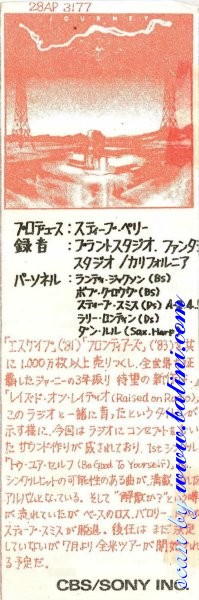 28AP 3177
JOURNEY
プロデュース:スティーブ・ペリー
録音:プラントスタジオ、ファンタ
スタジオ/カリフォルニア
パーソネル:ランディ・ジャクソン(Bs)
ボブ・グロウブ(Bs)
スティーブ・スミス(Ds) A-
ラリー・ロンディン(Ds)
ダン・ハル(Sax.Harp
「エスケイプ」('81)「フロンティアーズ」('83)を
に1,000万枚以上売りつくし、全世界
したジャーニーの3年振り 待望の新作
「レイズド・オン・レイディオ」(Raised on Radio)
このラジオと一緒に育ったという
示す様に、今回はラジオにコンセプト
たサウンド作りが成されており、1stシングル
「トゥ・ユアセルフ」(Be Good To Yourself)、
シングルヒットの可能性のある曲が、満載
アルバムとなっている。そして"解散か?"という噂
が流れていたが、ベースのロス・バロリー、
スティーブ・スミスが脱退。後任はまだ決定
していないが7月より全米ツアーが開始
る予定だ。
CBS/SONY INC
www.batini.com